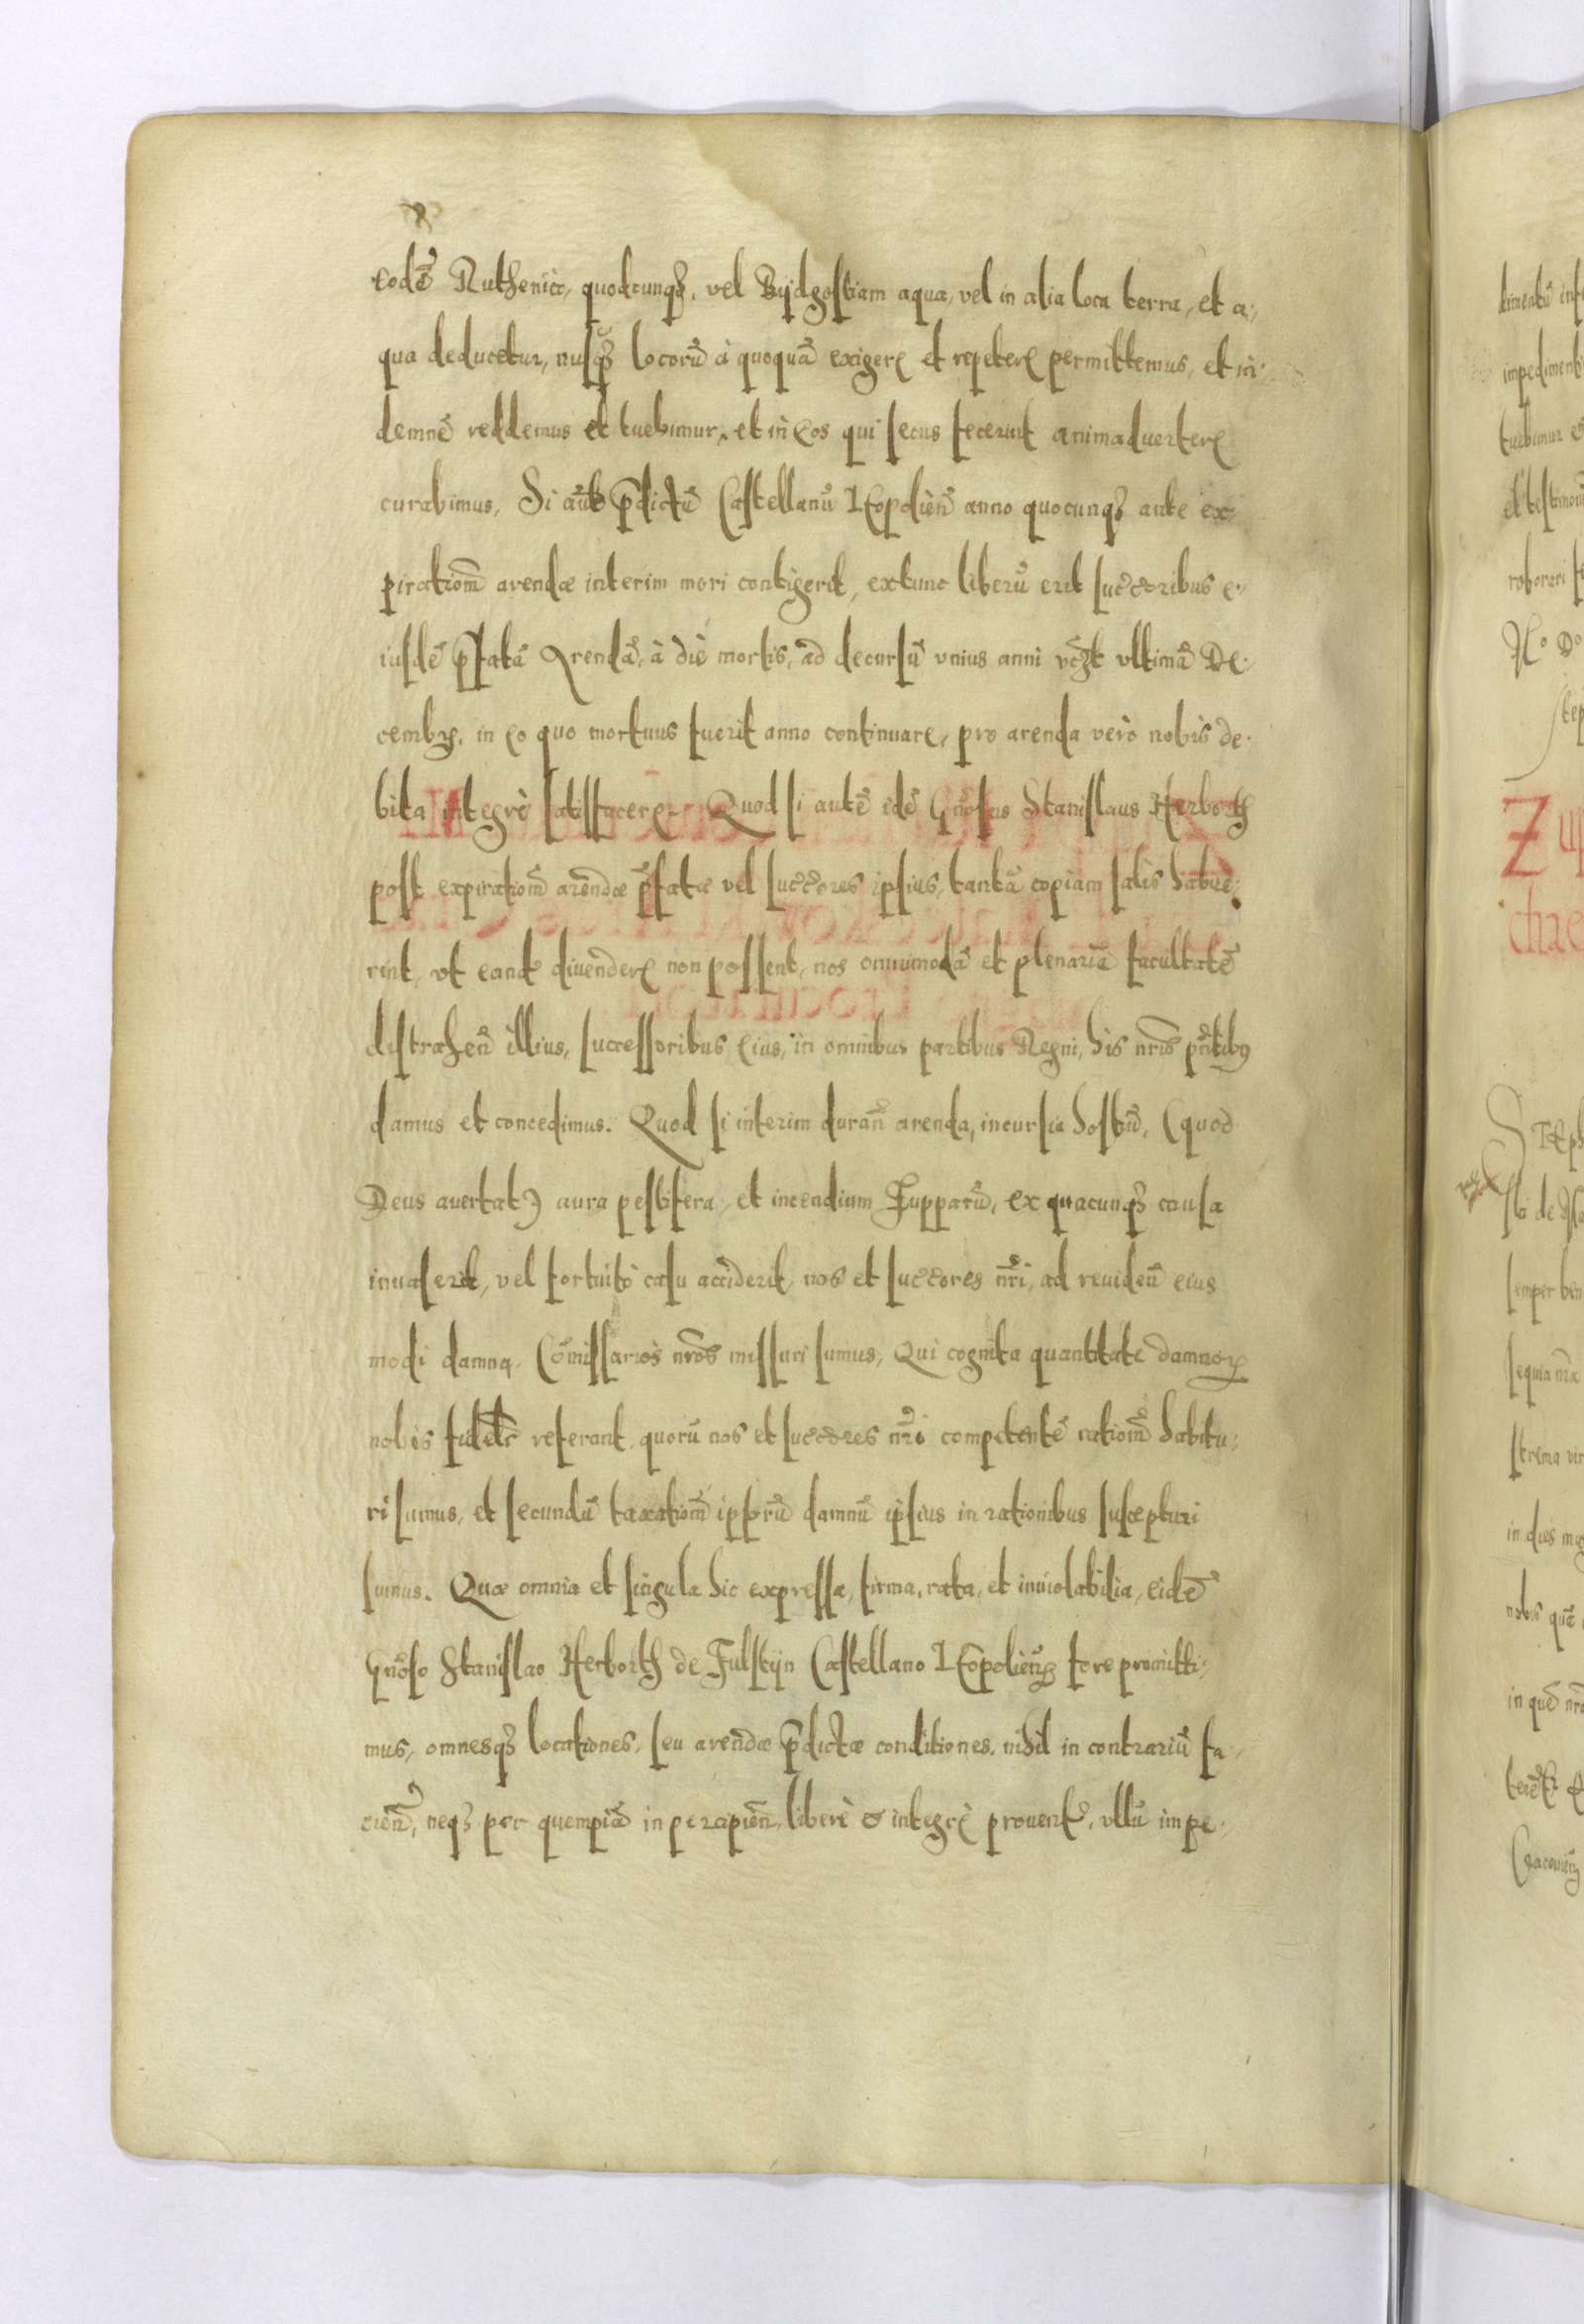 eodē Ruthenicæ, quodcunq₃, vel Bydgostiam aqua, vel in alia loca terra, et a,
qua deducetur, nusq̃₃ locorũ à quoquã exigerę et repeterę permittemus, et in,
demnē reddemus et tuebimur, et in eos qui secus fecerint animaduerterę
curabimus. Si aũt p̄dictũ Castellanũ Leopolien̄ anno quocunq₃ ante ex,
piratiom̄ arendæ interim mori contigerit, extunc liberũ erit succ̄oribus e,
iusdē p̄fatã Arendã, à die mortis, ad decursũ vnius anni vc̄zt vltimã De,
cembr̄, in eo quo mortuus fuerit anno continuare, pro arenda verò nobis de,
bita integrè satisfacerę. Quod si autē idē Gn̄osus Stanislaus Herborth
post expiratiom̄ arendæ p̄fatæ vel succ̄ores ipsius, tantã copiam salis habue,
rint, vt eand̄ diuenderę non possent, nos omnimodã et plenariã facultatē
distrahen̄ illius, successoribus eius, in omnibus partibus Regni, his nr̄is pn̄tibꝰ
damus et concedimus. Quod si interim duran̄ arenda, incursio hostiũ, (quod
Deus auertat) aura pestifera, et incendium Zupparũ, ex quacunq₃ causa
inuaserit, vel fortuito casu acciderit, nos et succ̄ores nr̄i, ad reuiden̄ eius
modi damna, Com̄issarios nr̄os missuri sumus, qui cognita quantitate damnoꝝ
nobis fidelr̄ referant, quorũ nos et succ̄ores nr̄i competentē ratiom̄ habitu,
ri sumus, et secundũ taxatiom̄ ipsorũ damnũ ipsius in rationibus suscepturi
sumus. Quæ omnia et singula hic expressa, firma, rata, et inuiolabilia, eidē
Gn̄oso Stanislao Herborth de Fulstyn Castellano Leopolien̄ fore promitti,
mus, omnesq₃ locationes, seu arendæ p̄dictæ conditiones, nihil in contrariũ fa,
cien̄, neq₃ per quempiã in percipien̄, liberè & integrè prouent̄, vllũ impe,